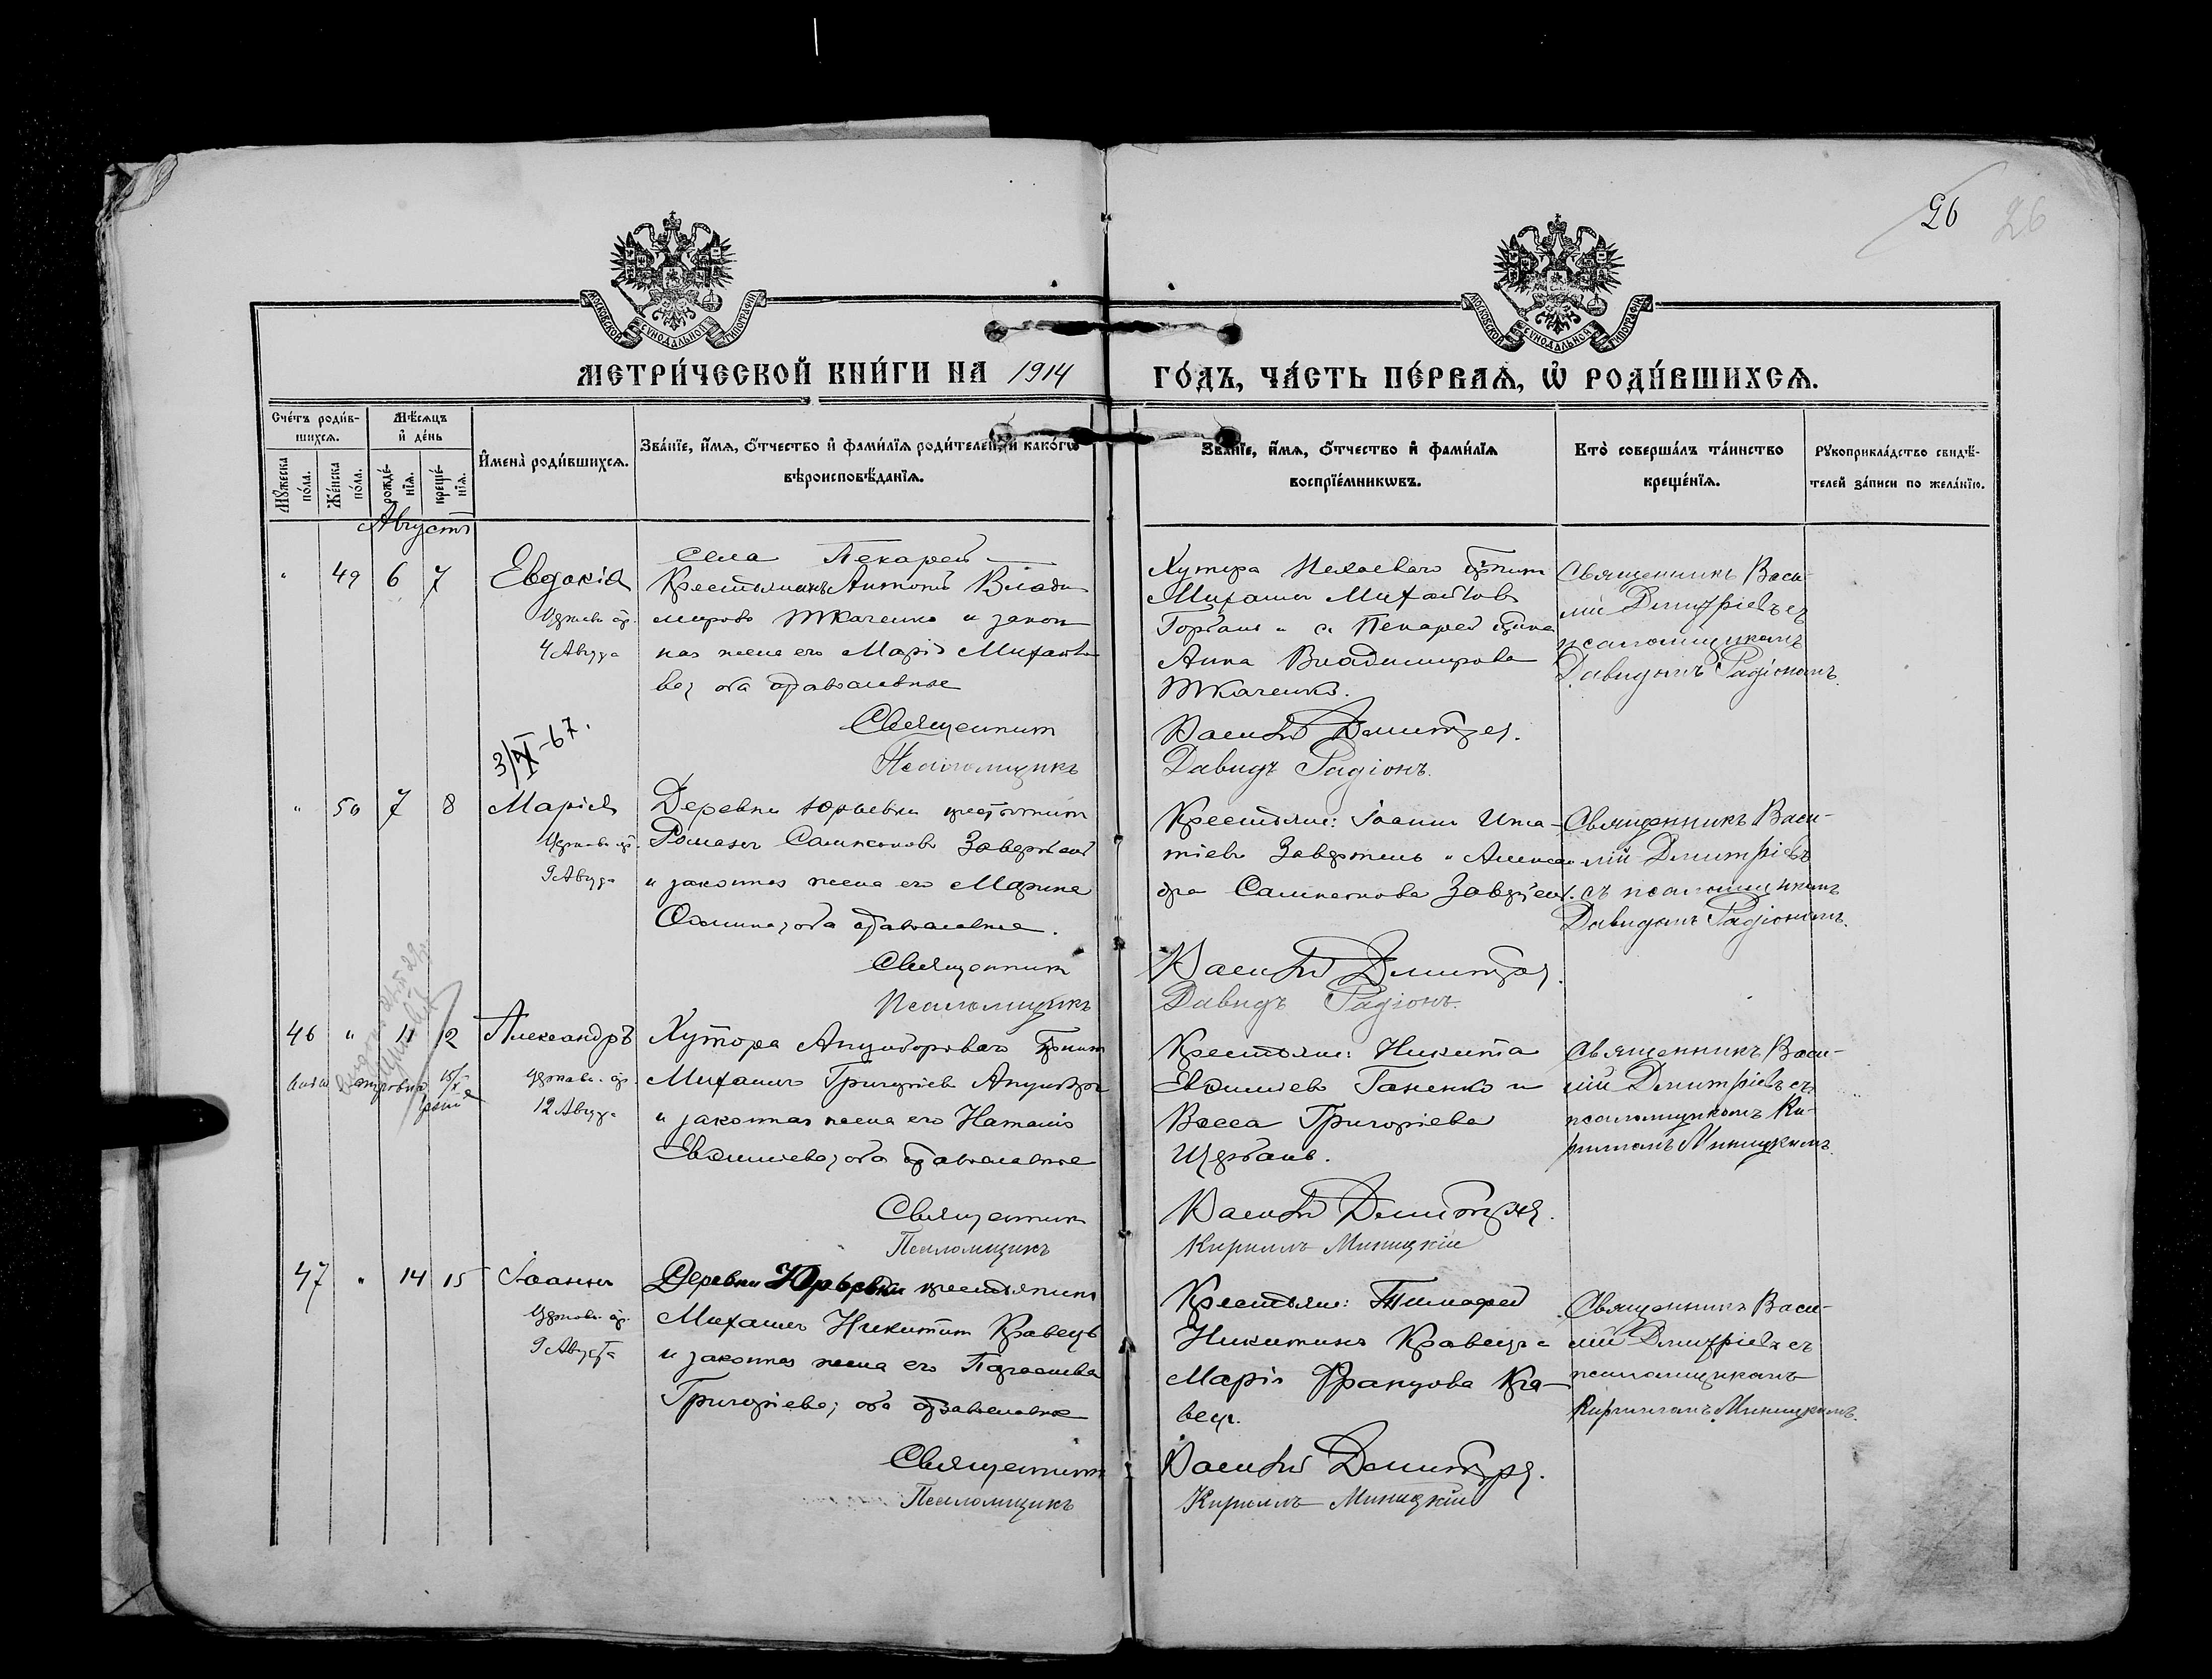 26 26
МОСКОВСКОЙ СѴНОДАЛЬНОЙ ТИПОГРАФІИ
МОСКОВСКОЙ СѴНОДАЛЬНОЙ ТИПОГРАФІИ
МЕТРИ́ЧЕСКОЙ КНИ́ГИ НА 1914 ГО́ДЪ, ЧА́СТЬ ПЕ́РВАѦ, Ѡ҆ РОДИ́ВШИХСѦ.
Сче́тъ роди́в-
шихсѧ.
Мѣ́сѧцъ
и҆ де́нь
Мꙋ́жеска
по́ла.
Же́нска
по́ла.
рожде́-
нїѧ.
креще́-
нїѧ.
И҆мена̀ роди́вшихсѧ.
Зва́нїе, и҆́мѧ, ѻ҆́тчество и҆ фами́лїѧ роди́телей, и҆ како́гѡ
вѣроисповѣ́данїѧ.
Зва́нїе, и҆́мѧ, ѻ҆́тчество и҆ фами́лїѧ
воспрїе́мникѡвъ.
Кто̀ соверша́лъ та́инство
креще́нїѧ.
Рꙋкоприкла́дство свидѣ́-
телей за́писи по жела́нїю.
Августъ
" 49 6 7 Евдокія
4 Августа
села Пекарей
Крестьянинъ Антоній Влади-
міровъ Ткаченко и закон-
ная жена его Марія Михайло-
ва, оба православные
Священникъ
Псаломщикъ
Хутора
Михаилъ Михайловъ
Горбань и с. Пекарей
Анна Владимірова
Ткаченко.
Василій Димитріев.
Давидъ Радіонъ.
Священникъ Васи-
лій Димитріевъ съ
псаломщикомъ
Давидомъ Радіономъ.
3/X-67.
" 50 7 8 Марія
9 Августа
Деревни Юрьевки крестьянинъ
Романъ Сампсоновъ
и законная жена его Марина
оба православные.
Священникъ
Псаломщикъ
Крестьяне: Іоаннъ Игна-
тіевъ и Алексан-
дра Сампсонова
Василій Димитріев.
Давидъ Радіонъ.
Священникъ Васи-
лій Димитріевъ
съ псаломщикомъ
Давидомъ Радіономъ.
46 " 11 12 Александръ
12 Августа
Хутора
Михаилъ Григоріевъ
и законная жена его Наталія
оба православные
Священникъ
Псаломщикъ
Крестьяне: Никита
Ганенко и
Васса Григоріева
Щербань.
Василій Димитріев.
Кириллъ Миницкій
Священникъ Васи-
лій Димитріевъ съ
псаломщикомъ Ки-
рилломъ Миницкимъ.
47 " 14 15 Іоаннъ
9 Августа
Деревни Юрьевки крестьянинъ
Михаилъ Никитинъ Кравецъ
и законная жена его
Григоріева; оба православные
Священникъ
Псаломщикъ
Крестьяне: Тимофей
Никитинъ Кравецъ и
Марія Францова Кра-
вец.
Василій Димитріев.
Кириллъ Миницкій
Священникъ Васи-
лій Димитріевъ съ
псаломщикомъ
Кирилломъ Миницкимъ.